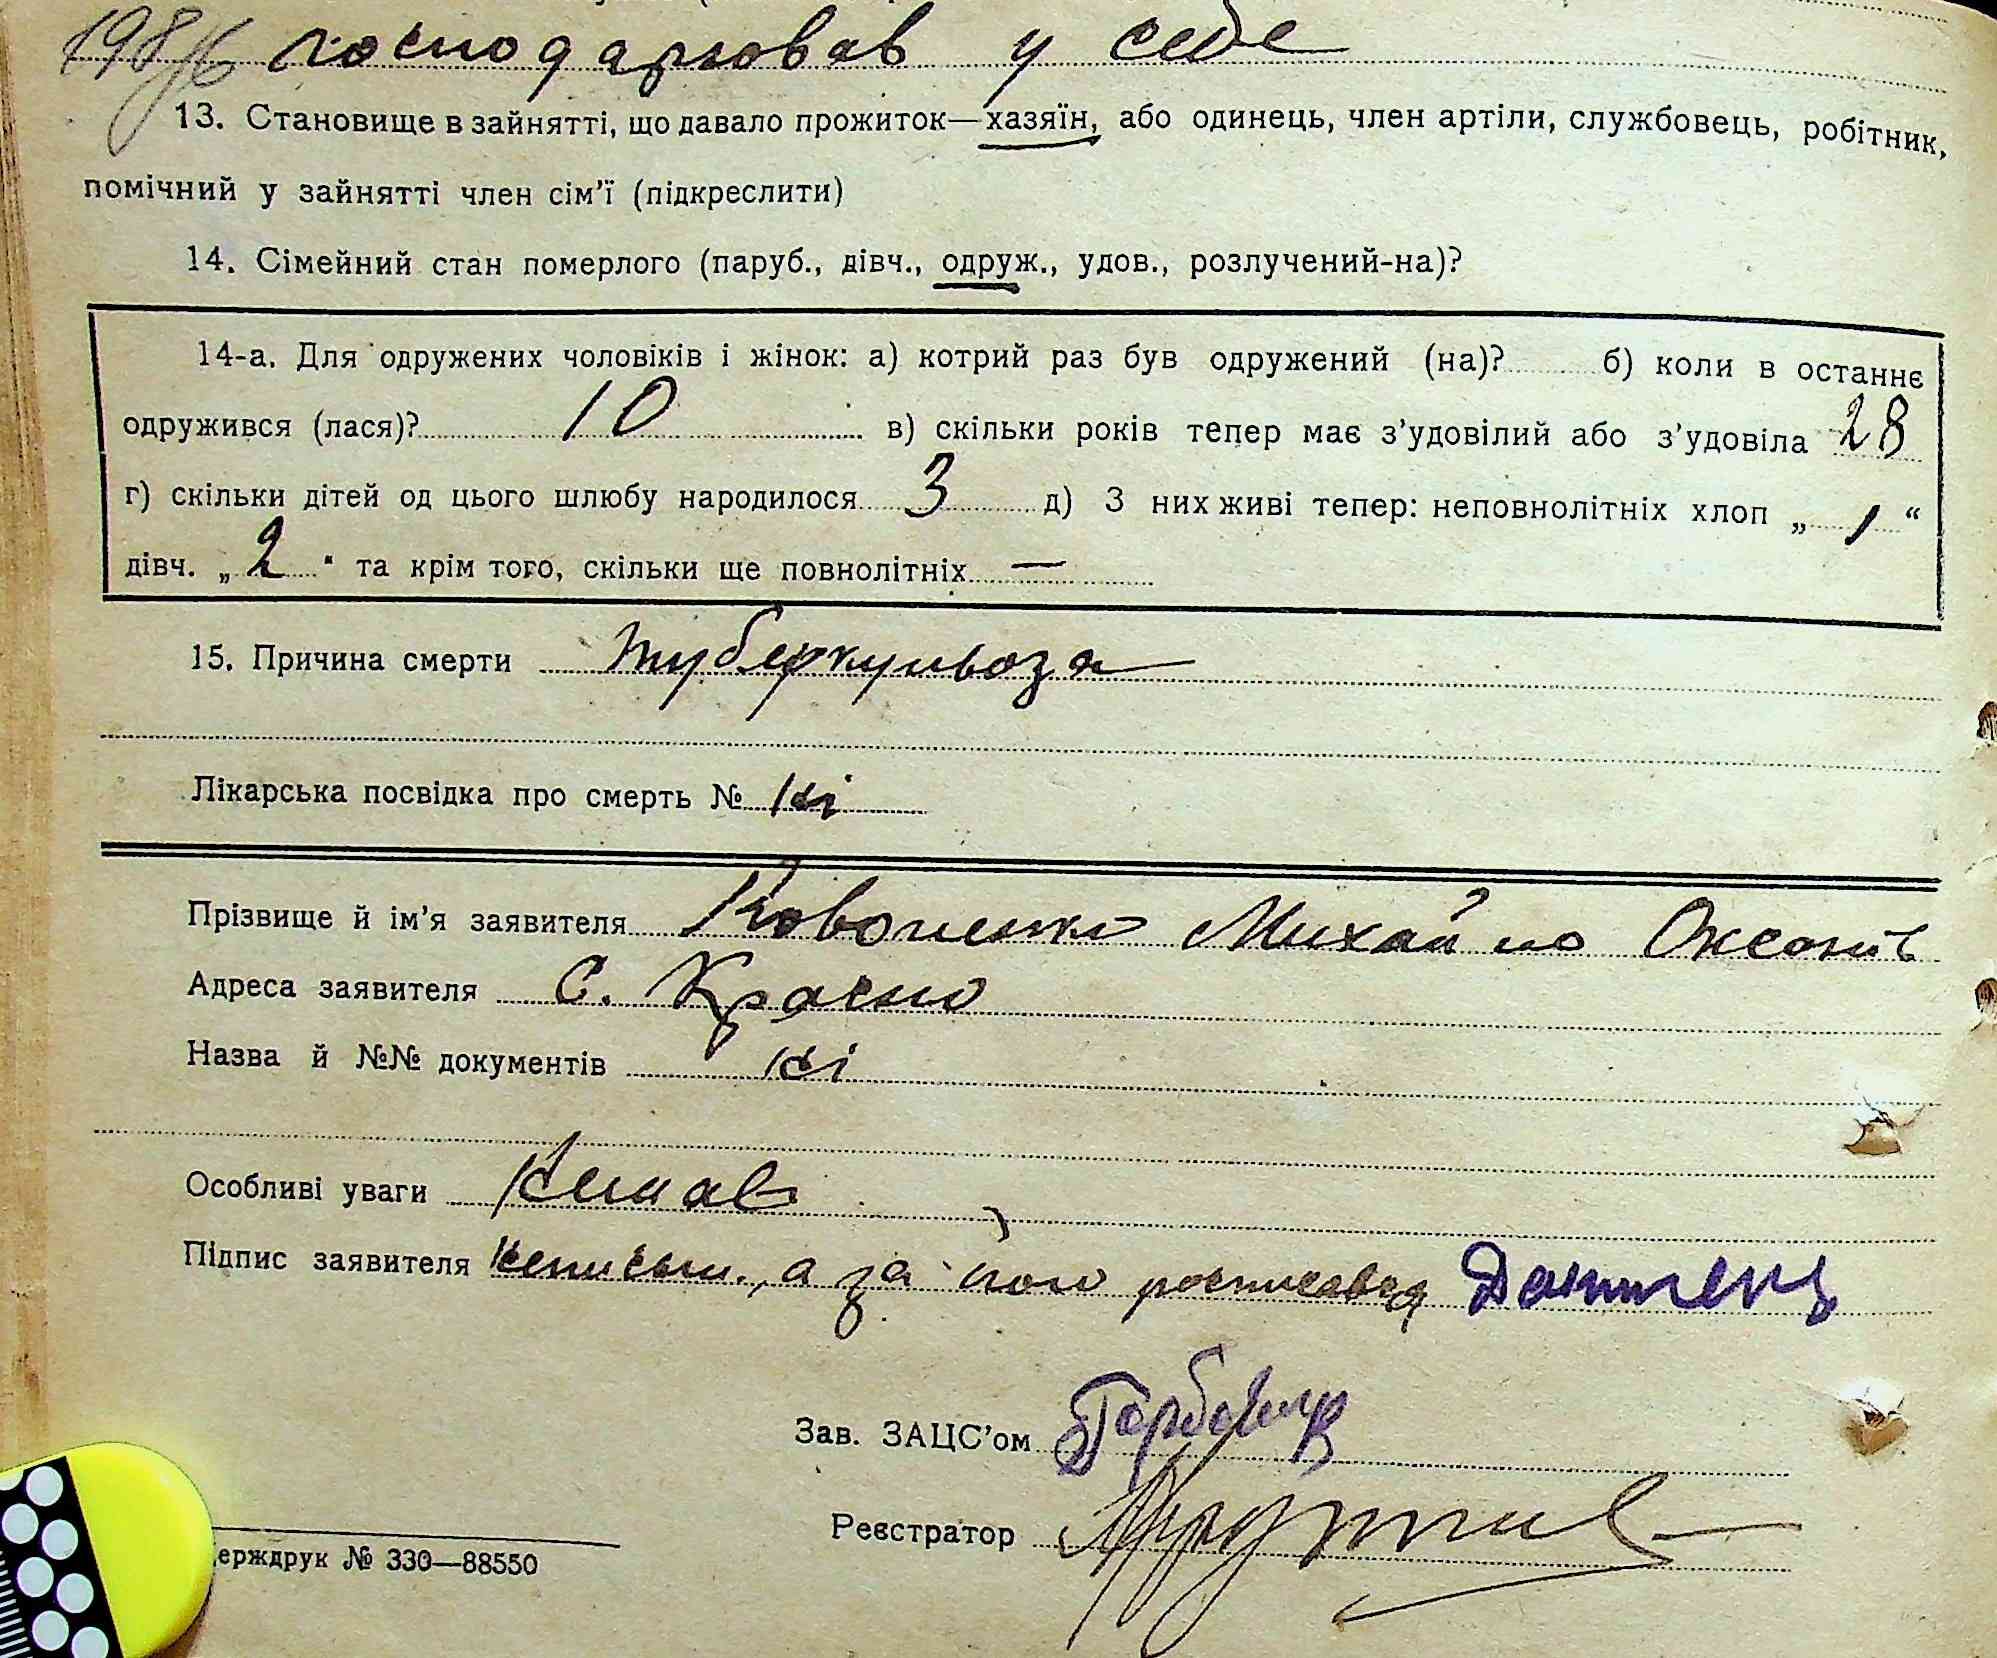 198/6 господарював у себе
13. Становище в зайнятті, що давало прожиток—хазяїн, або одинець, член артіли, службовець, робітник,
помічний у зайнятті член сім'ї (підкреслити)
14. Сімейний стан померлого (паруб., дівч., одруж., удов., розлучений-на)?
14-а. Для одружених чоловіків і жінок: а) котрий раз був одружений (на)? б) коли в останнє
одружився (лася)? 10 в) скільки років тепер має з'удовілий або з'удовіла 28
г) скільки дітей од цього шлюбу народилося 3 д) З них живі тепер: неповнолітніх хлоп „ 1 “
дівч. „ 2 “ та крім того, скільки ще повнолітніх —
15. Причина смерти туберкульоза
Лікарська посвідка про смерть № ні
Прізвище й ім'я заявителя Михайло
Адреса заявителя с. Красно
Назва й №№ документів ні
Особливі уваги Немає
Підпис заявителя неписьм., а за його росписався
Зав. ЗАЦС'ом
Реєстратор
ерждрук № 330—88550